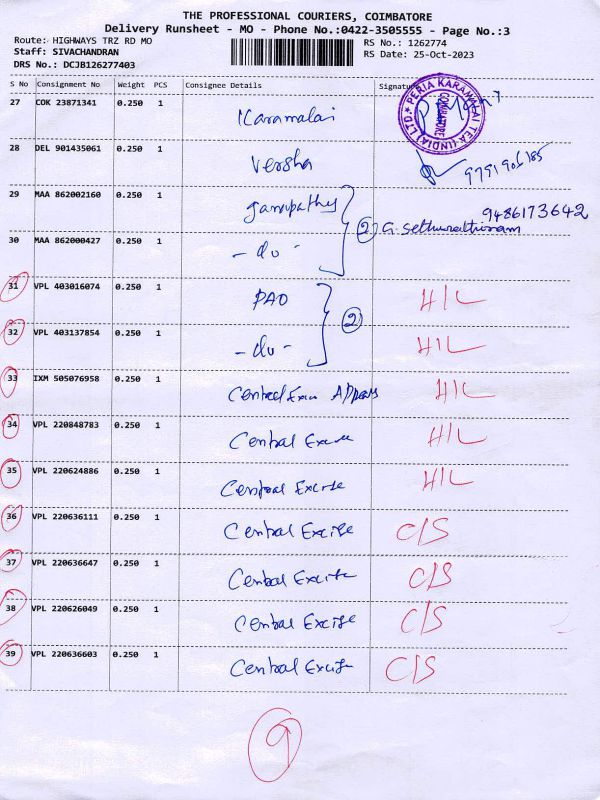 THE PROFESSIONAL COURIERS, COIMBATORE
Delivery Runsheet - MO - Phone No.:0422-3505555 - Page No.:3
Route: HIGHWAYS TRZ RD MO
RS No.: 1262774
Staff: SIVACHANDRAN
RS Date: 25-Oct-2023
DRS No.: DCJB126277403
S No Consignment No Weight PCS Consignee Details Signature
PERIA KARAMALAI TEA (INDIA) LTD. COIMBATORE
27 COK 23871341 0.250 1 Karamalai
28 DEL 901435061 0.250 1 Versha
29 MAA 862002160 0.250 1 ganapathy 9486173642
② G. Sethurathinam
30 MAA 862000427 0.250 1 - do -
31 VPL 403016074 0.250 1 PAO H/L
②
32 VPL 403137854 0.250 1 - do - H/L
33 IXM 505076958 0.250 1 H/L
34 VPL 220848783 0.250 1 Central Excise H/L
35 VPL 220624886 0.250 1 Central Excise H/L
36 VPL 220636111 0.250 1 Central Excise C/S
37 VPL 220636647 0.250 1 Central Excise C/S
38 VPL 220626049 0.250 1 Central Excise C/S
39 VPL 220636603 0.250 1 Central Excise C/S
9